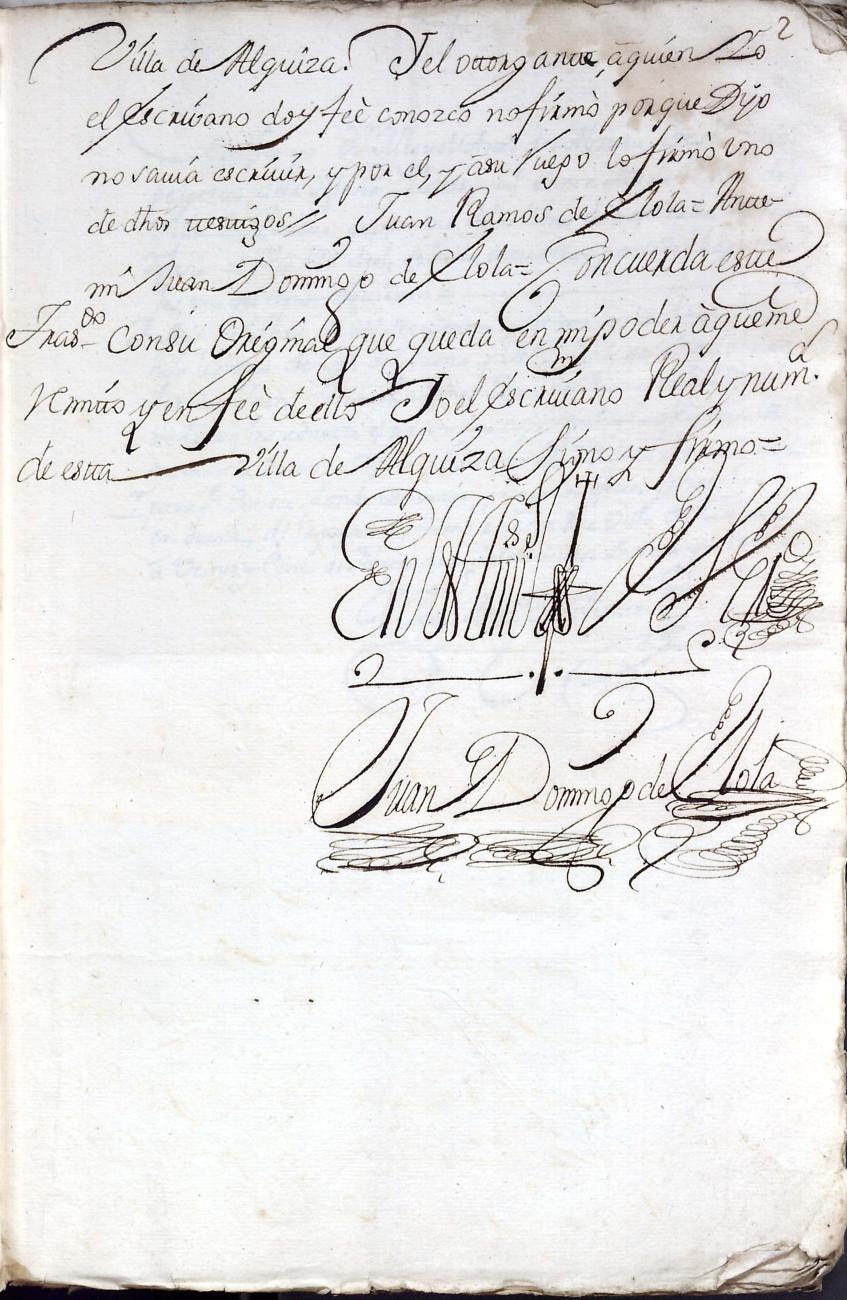 2
Villa de Alquiza. Y el ottorgantte, à quien Yo
el escrivano doy feè conozco no firmò porque Dijo
no savia escrivir, y por el, y àsu ruego lo firmò Uno
de dhos ttesttigos // Juan Ramos de Elola = Antte
mi Juan Domingo de Elola = Concuerda estte
Tras.do Consu Origínal que queda en mi poder à que me
remitto y en feè de ello Yo el escrivano Real y num.l
de estta Villa de Alquiza Signo y firmo =
En testtim.o de
Juan Domingo de Elola